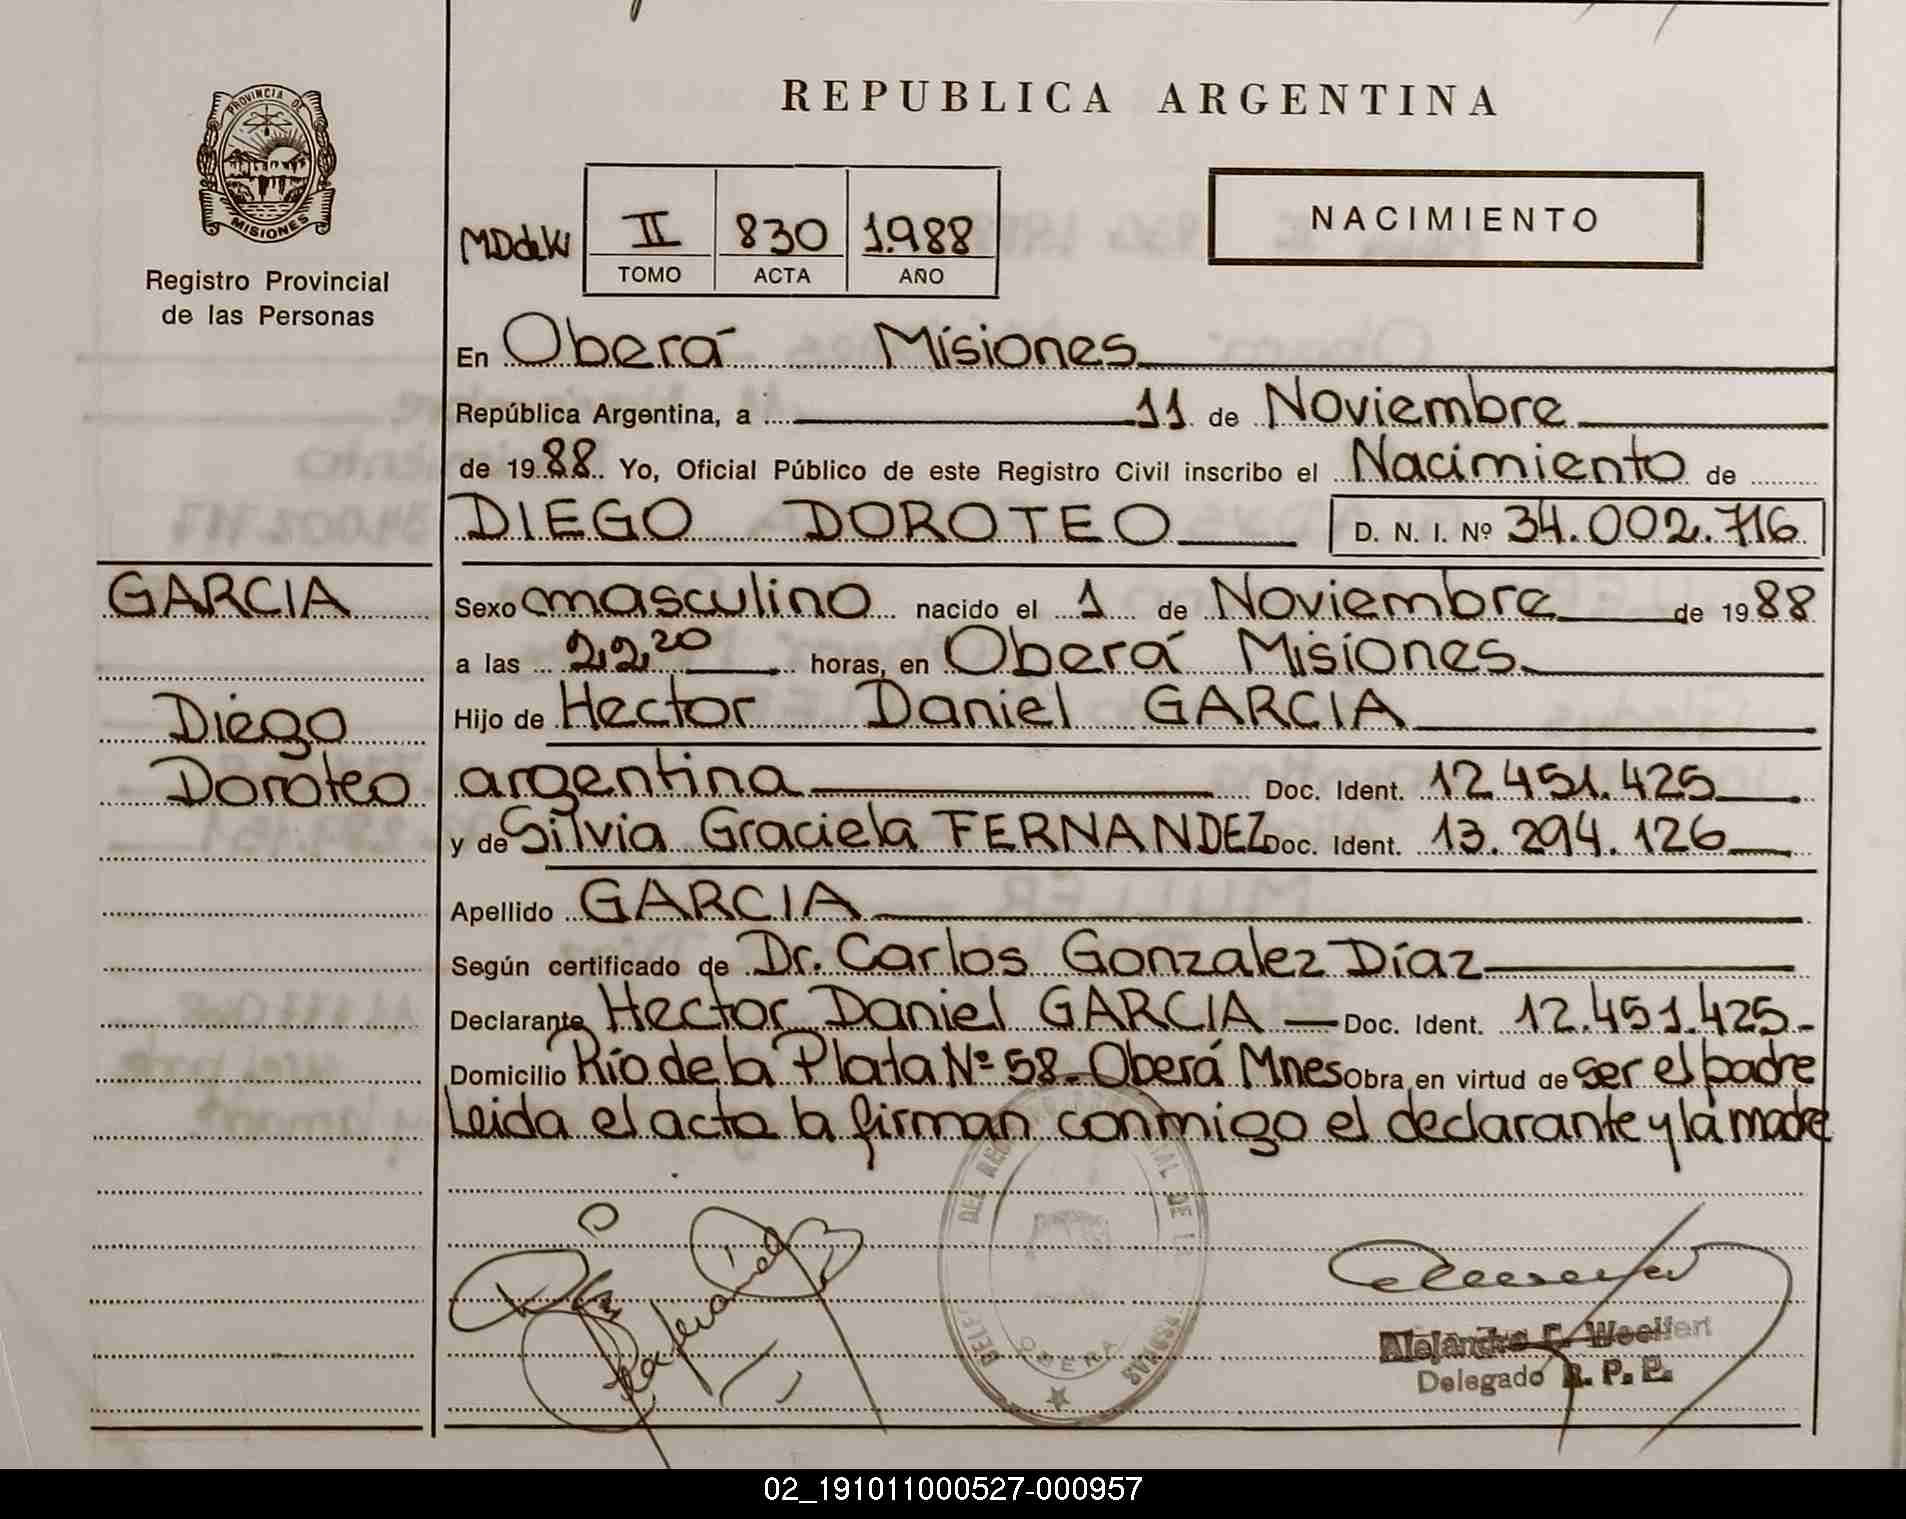 REPUBLICA ARGENTINA
PROVINCIA DE
MISIONES
Registro Provincial
de las Personas
II 830 1.988
TOMO ACTA AÑO
NACIMIENTO
En Oberá Misiones
República Argentina, a 11 de Noviembre
de 1988 Yo, Oficial Público de este Registro Civil inscribo el Nacimiento de
DIEGO DOROTEO D. N. I. Nº 34.002.716
GARCIA
Diego
Doroteo
Sexo masculino nacido el 1 de Noviembre de 1988
a las 22,20 horas, en Oberá Misiones
Hijo de Hector Daniel GARCIA
argentina Doc. Ident. 12.451.425
y de Silvia Graciela FERNANDEZ Doc. Ident. 13.294.126
Apellido GARCIA
Según certificado de Dr. Carlos Gonzalez Díaz
Declarante Hector Daniel GARCIA Doc. Ident. 12.451.425-
Domicilio Río de la Plata Nº 58- Oberá Mnes Obra en virtud de ser el padre
Leida el acta la firman conmigo el declarante y la madre
OBERA
Delegado R. P. P.
02_191011000527-000957